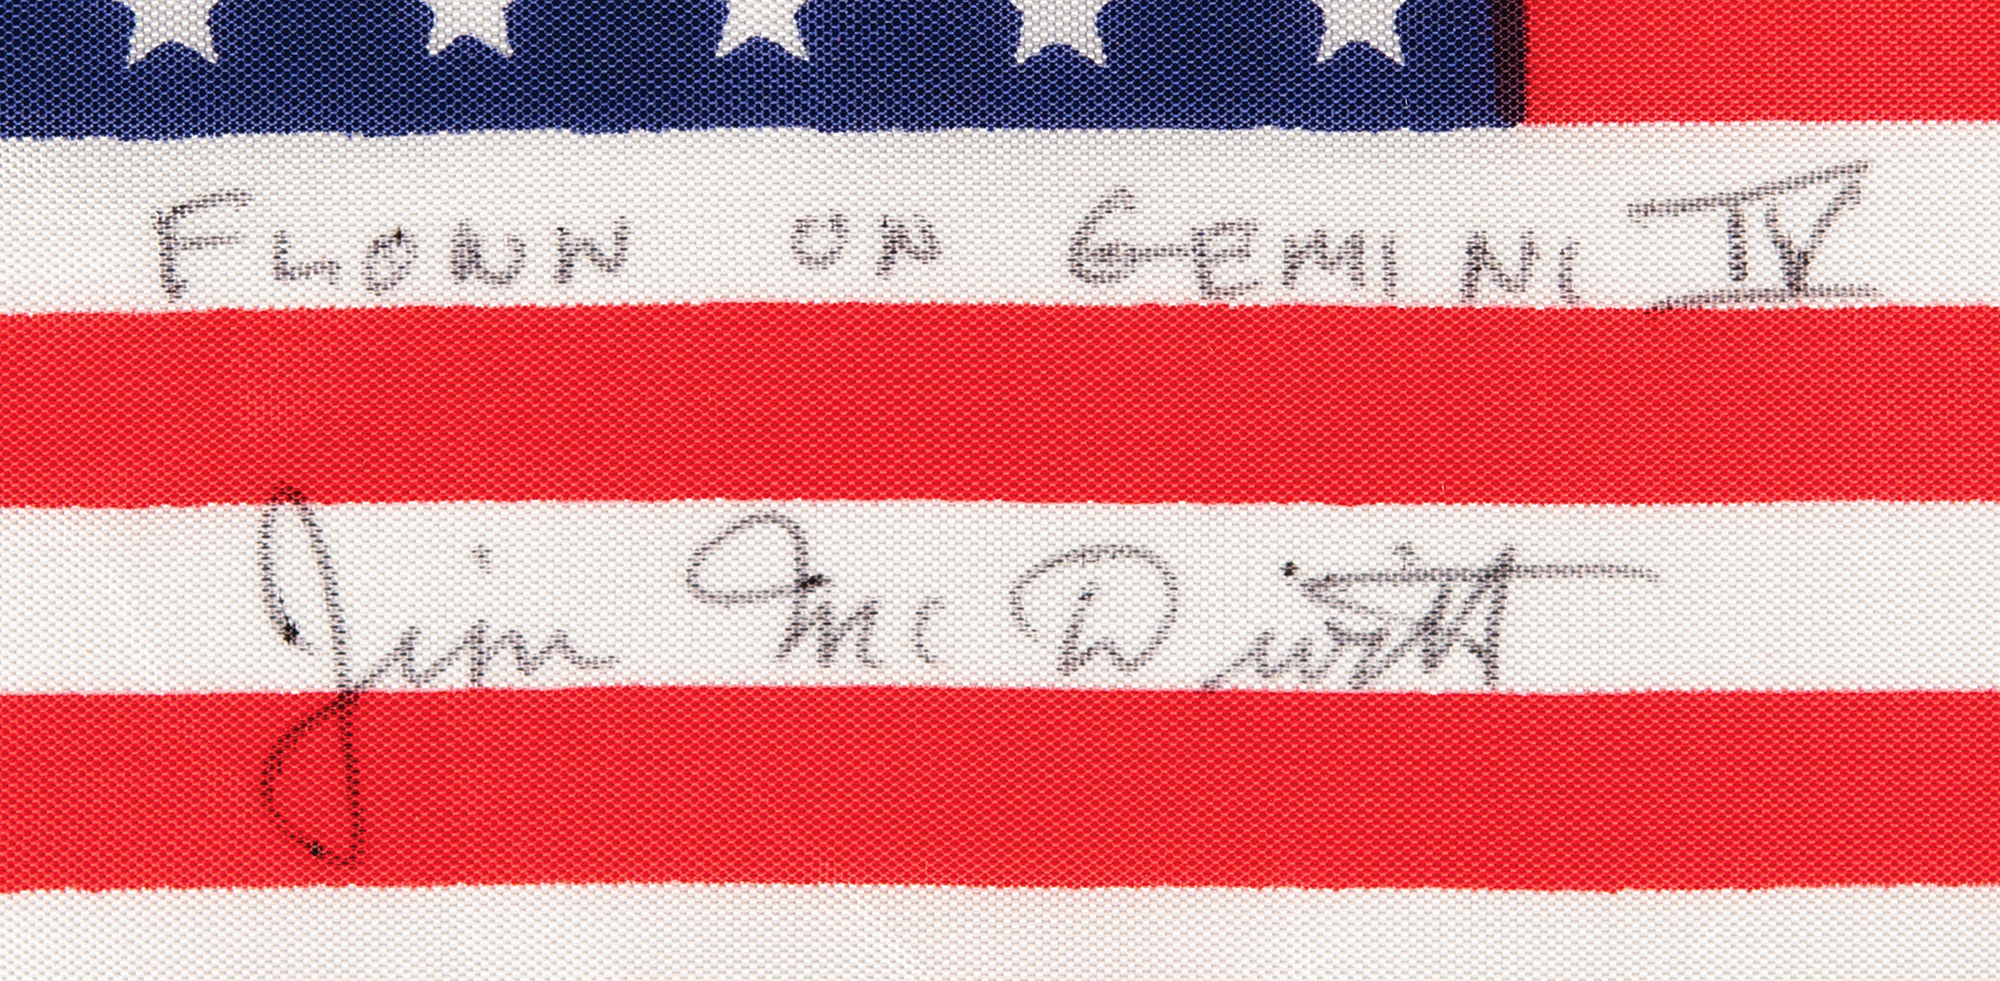 FLOWN ON GEMINI IV
Jim McDivitt